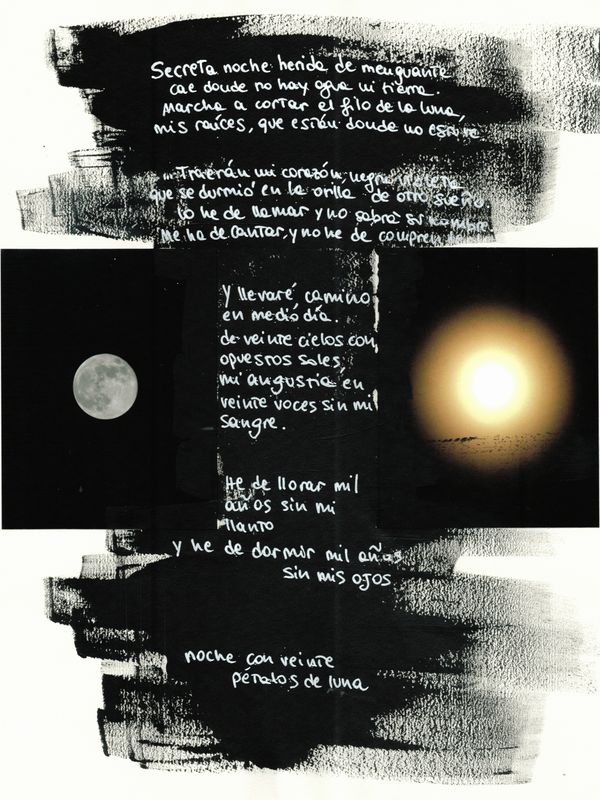 Secreta noche herida de menguante
cae donde no hay agua ni tierra.
Marcha a cortar el filo de la luna,
mis raíces, que están donde no
...Traerán mi corazón, negra
que se durmió en la orilla de otro sueño.
lo he de llamar y no sabrá su nombre
Me ha de cantar, y no he de
Y llevaré camino
en medio día.
de veinte cielos con
opuestos soles,
mi angustia en
veinte voces sin mi
sangre.
He de llorar mil
años sin mi
llanto
y he de dormir mil años
sin mis ojos
noche con veinte
pétalos de luna